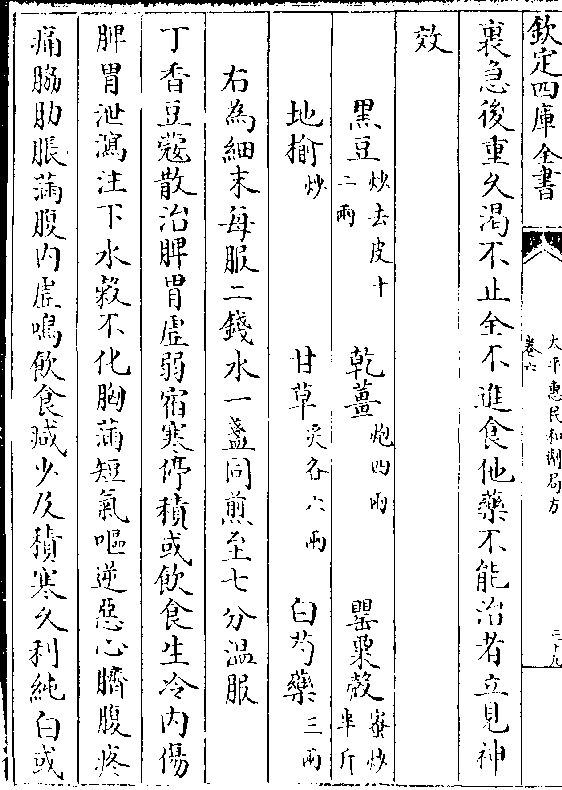 欽定四庫全書
太平惠民和劑局方
卷六
二十九
裏急後重久渴不止全不進食他藥不能治者立見神
效
黑豆炒去皮十二兩 乾薑炮四兩 罌粟殼蜜炒半斤
地榆炒 甘草炙各六兩 白芍藥三兩
右為細末每服二錢水一盞同煎至七分温服
丁香豆蔻散治脾胃虛弱宿寒停積或飲食生冷内傷
脾胃泄瀉注下水穀不化胸滿短氣嘔逆惡心臍腹疼
痛脇肋脹滿腹内虛鳴飲食減少及積寒久利純白或